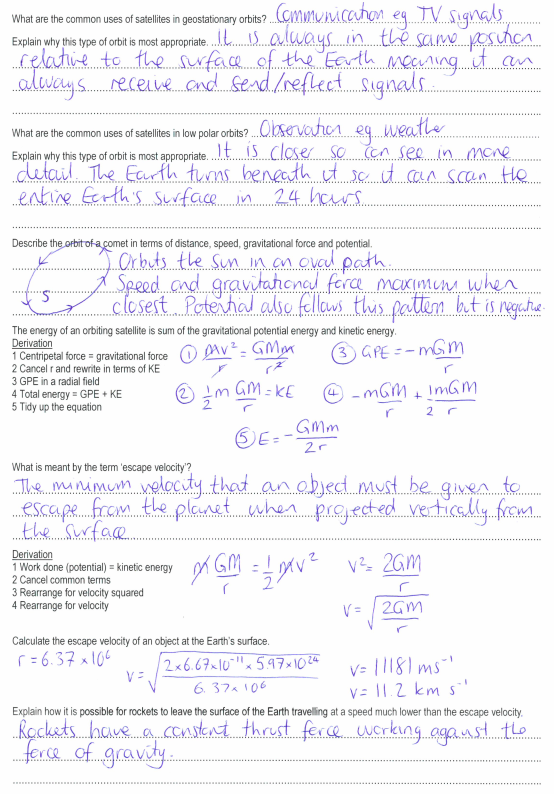 What are the common uses of satellites in geostationary orbits? Communication eg TV signals
Explain why this type of orbit is most appropriate. It is always in the same position
relative to the surface of the Earth meaning it can
always receive and send/reflect signals.
What are the common uses of satellites in low polar orbits? Observation eg weather
Explain why this type of orbit is most appropriate. It is closer so can see in more
detail. The Earth turns beneath it so it can scan the
entire Earth's surface in 24 hours
Describe the orbit of a comet in terms of distance, speed, gravitational force and potential.
Orbits the sun in an oval path.
S
Speed and gravitational force maximum when
closest. Potential also follows this pattern but is negative.
The energy of an orbiting satellite is sum of the gravitational potential energy and kinetic energy.
Derivation
1 Centripetal force = gravitational force
2 Cancel r and rewrite in terms of KE
3 GPE in a radial field
4 Total energy = GPE + KE
5 Tidy up the equation
① mv²/r = GMm/r² ③ GPE = -mGM/r
② 1/2 m GM/r = KE ④ -mGM/r + 1/2 mGM/r
⑤ E = -GMm/2r
What is meant by the term 'escape velocity'?
The minimum velocity that an object must be given to
escape from the planet when projected vertically from
the surface
Derivation
1 Work done (potential) = kinetic energy
2 Cancel common terms
3 Rearrange for velocity squared
4 Rearrange for velocity
mGM/r = 1/2 mv² v² = 2GM/r
v = √(2GM/r)
Calculate the escape velocity of an object at the Earth's surface.
r = 6.37 × 10⁶ v = √(2×6.67×10⁻¹¹ × 5.97×10²⁴ / 6.37×10⁶) v = 11181 ms⁻¹
v = 11.2 km s⁻¹
Explain how it is possible for rockets to leave the surface of the Earth travelling at a speed much lower than the escape velocity.
Rockets have a constant thrust force working against the
force of gravity.